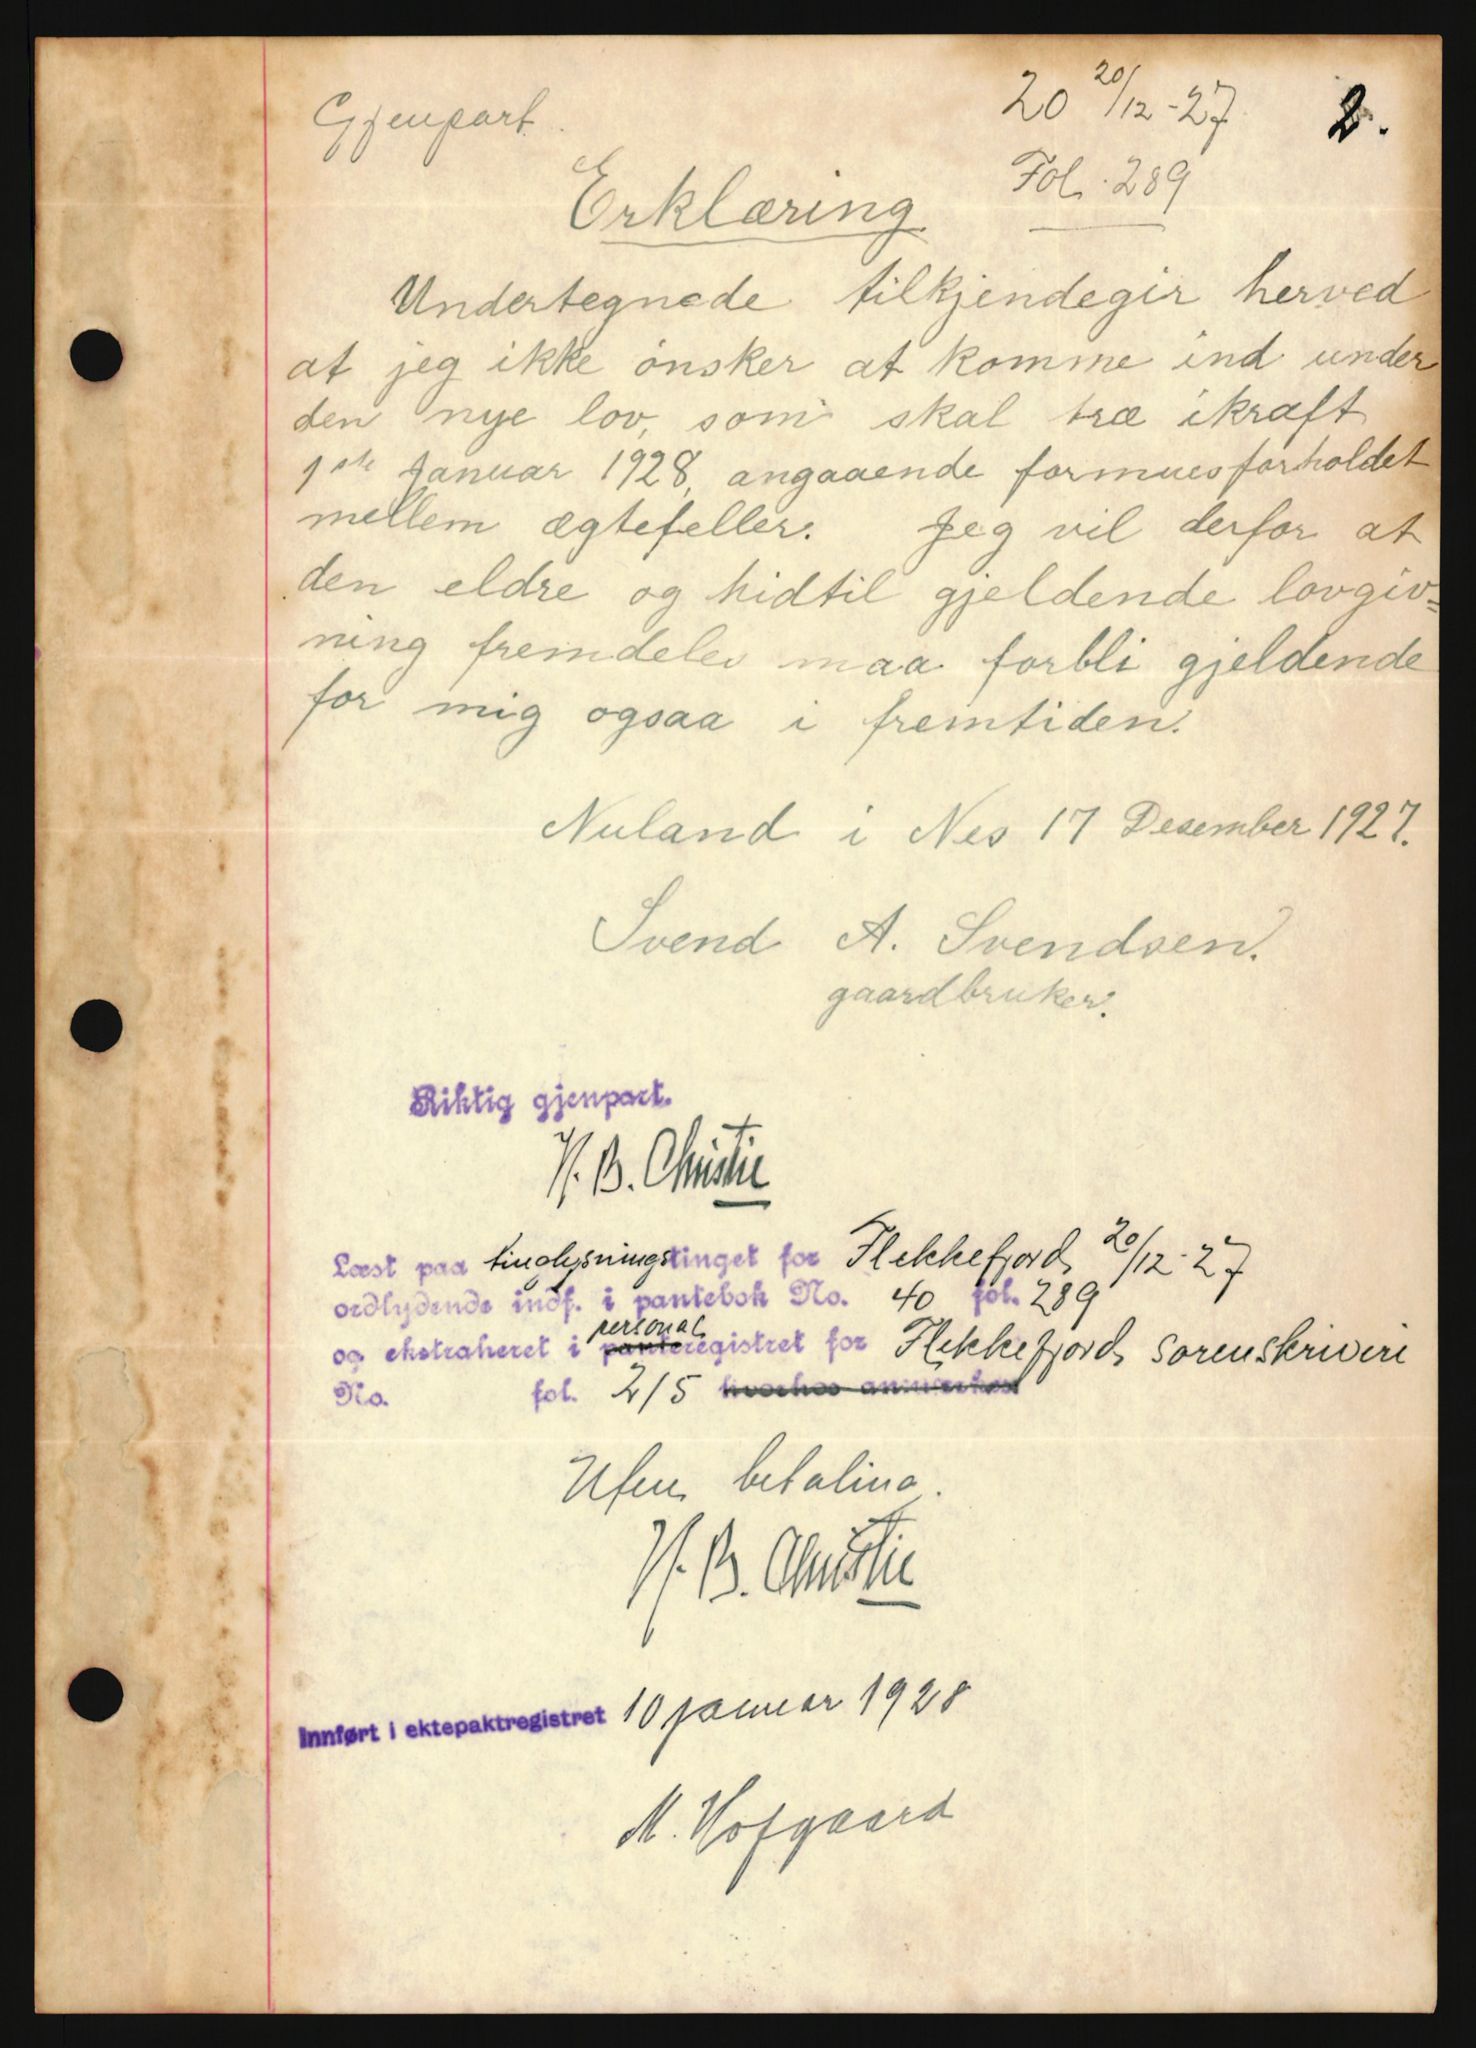 Gjenpart.
20 20/12-27
2.
Fol. 289
Erklæring
Undertegnede tilkjendegir herved
at jeg ikke önsker at komme ind under
den nye lov, som skal træ ikraft
1ste Januar 1928, angaaende formuesforholdet
mellem ægtefeller. Jeg vil derfor at
den eldre og hidtil gjeldende lovgiv=
ning fremdeles maa forbli gjeldende
for mig ogsaa i fremtiden.
Nuland i Nes 17 Desember 1927.
Svend A. Svendsen.
gaardbruker.
Riktig gjenpart.
H. B. Christie
Læst paa tinglysningstinget for Flekkefjord 20/12-27
ordlydende indf. i pantebok No. 40 fol. 289
og ekstraheret i personal panteregistret for Flekkefjord sorenskriveri
No. fol. 215 hvorhos anmerkes
Uten betaling.
H. B. Christie
Innført i ektepaktregistret 10 januar 1928
M. Hofgaard